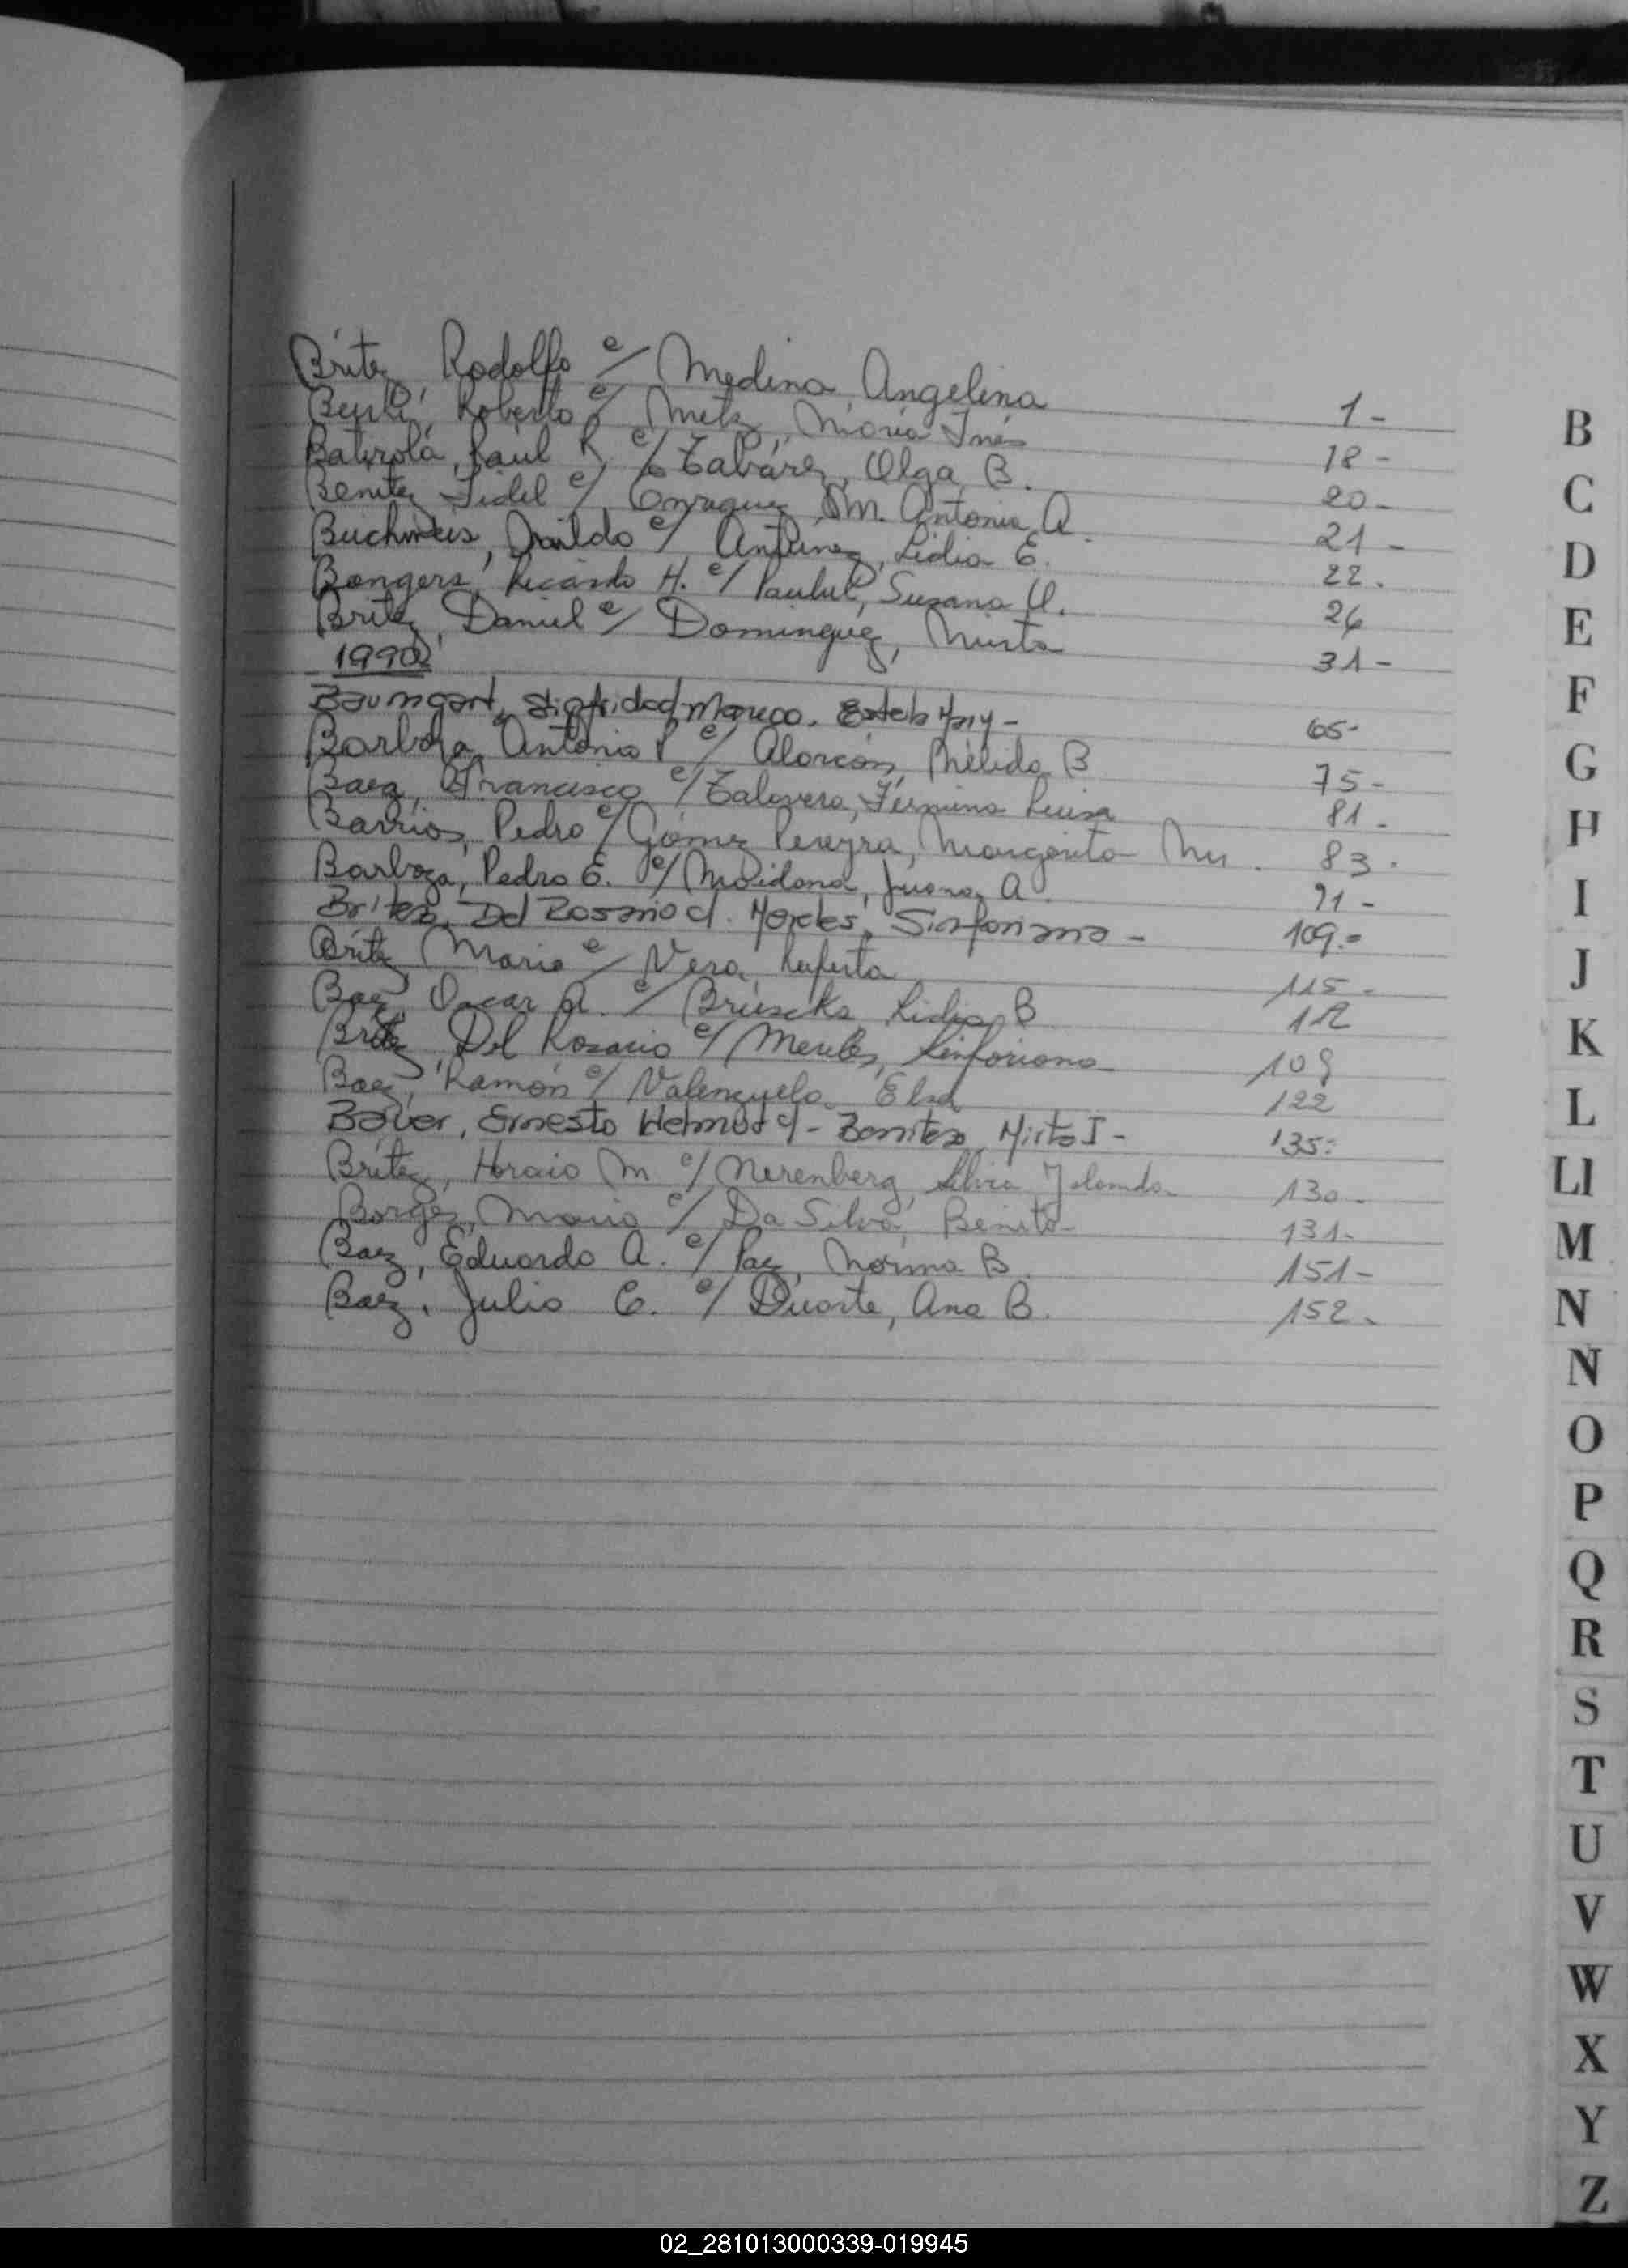 Britez, Rodolfo c/ Medina, Angelina 1-
Roberto c/ Metz, María Inés 18-
Raúl R. c/ Tabárez, Olga B. 20-
Benitez Fidel c/ M. Antonia A. 21-
c/ Antunez, Lidia E. 22.
Bongers, Ricardo H. c/ Susana 26
Britez, Daniel c/ Dominguez, Mirta 31-
1990
Baumgart, Sigfrido c/ Mareco. Estela 65-
Barboza, Antonio P. c/ Alarcón, Mélida B 75-
Baez, Francisco c/ Talavera, Fermina Luisa 81-
Barrios, Pedro c/ Gómez Pereyra, Margarita 83.
Barboza, Pedro E. c/ Maidana, Juana A. 91-
Britez, Del Rosario c/. Mereles, Sinforiana - 109.-
Britez Mario c/ Vera, Ruperta 115-
Baez, Oscar A. c/ Lidia B 112
Britez Del Rosario c/ Mereles, Sinforiana 109
Baez, Ramón c/ Valenzuela Elsa 122
Bauer, Ernesto Helmut c/- Benitez, Mirta I- 135-
Britez, M c/ Nerenberg, Silvia Yolanda 130-
Borges, Mario c/ Da Silva, Benita 131-
Baez, Eduardo A. c/ Paz, Norma B. 151-
Baez, Julio C. c/ Duarte, Ana B. 152-
B
C
D
E
F
G
H
I
J
K
L
Ll
M
N
Ñ
O
P
Q
R
S
T
U
V
W
X
Y
Z
02_281013000339-019945